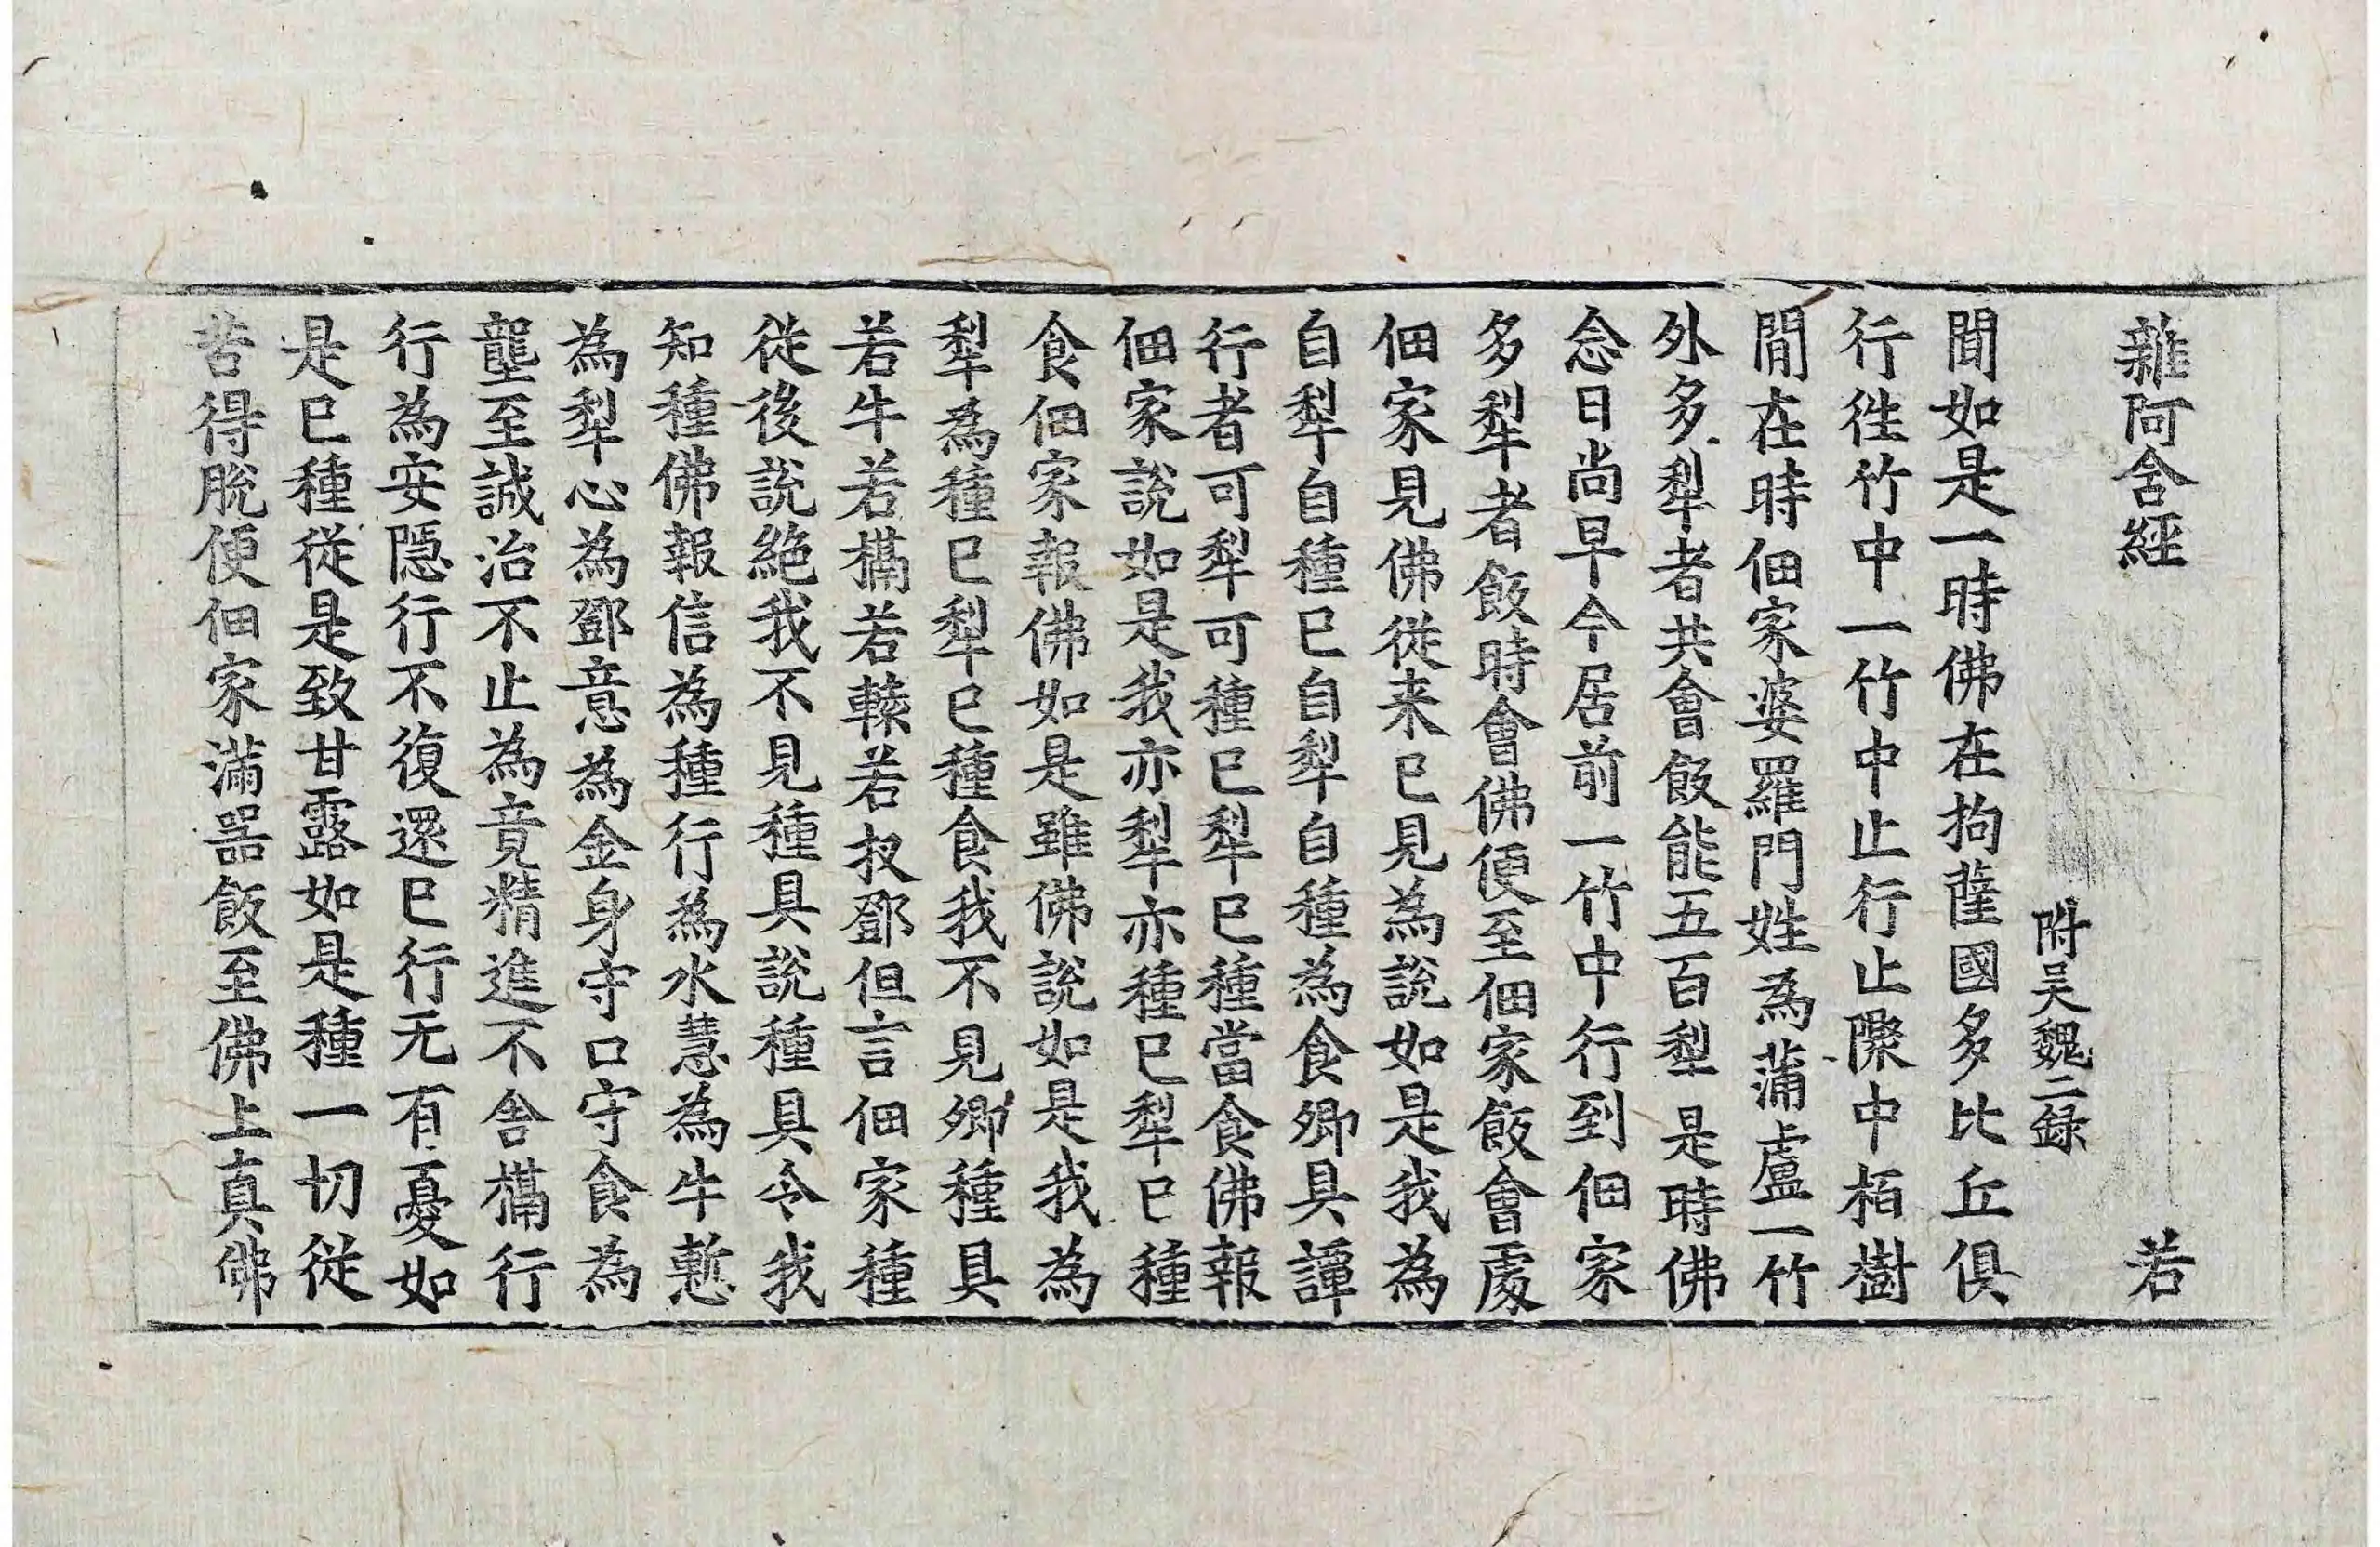 雜阿含經 若
附吴魏二録
聞如是一時佛在拘薩國多比丘俱
行徃竹中一竹中止行止𨻶中栢樹
閒在時佃家婆羅門姓為蒲盧一竹
外多犁者共會飯能五百犁是時佛
念日尚早今居前一竹中行到佃家
多犁者飯時會佛便至佃家飯會處
佃家見佛從来已見為說如是我為
自犁自種已自犁自種為食卿具譚
行者可犁可種已犁已種當食佛報
佃家說如是我亦犁亦種已犁已種
食佃家報佛如是雖佛說如是我為
犁為種已犁已種食我不見卿種具
若牛若槅若𨍏若杈鄧但言佃家種
從後說絶我不見種具說種具令我
知種佛報信為種行為水慧為牛慙
為犁心為鄧意為金身守口守食為
壟至誠治不止為竟精進不舎槅行
行為安隱行不復還已行无有憂如
是已種從是致甘露如是種一切從
苦得脫便佃家滿器飯至佛上真佛